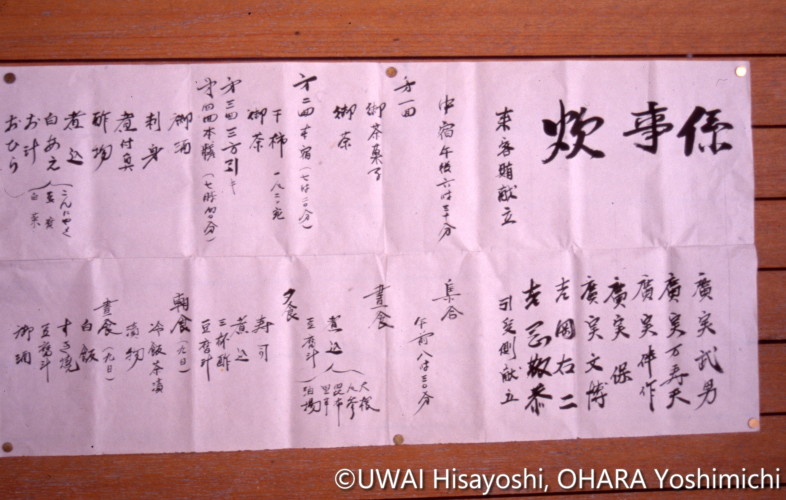 炊事係
廣実武男
廣実万寿夫
廣実伴作
廣実保
廣実文博
吉岡右二
吉岡敬恭
来客賄献立
中宿午後六時三十分
才一回
御茶菓子
御茶
才二回本宿(七時二〇分)
干柿
御茶
才三回三方引
才四回本膳(七時四〇分)
御酒
刺身
煮付
酢物
煮込
白あえ(こんにゃく
お汁
おひら
引受側献立
集合
午前八時三〇分
晝食
煮込
大根
人参
昆布
里芋
油揚
豆腐汁
夕食
寿司
煮込
三杯酢
豆腐汁
朝食(九日)
冷飯茶漬
漬物
晝食(九日)
白飯
すき焼
豆腐汁
御酒
©UWAI Hisayoshi, OHARA Yoshimichi